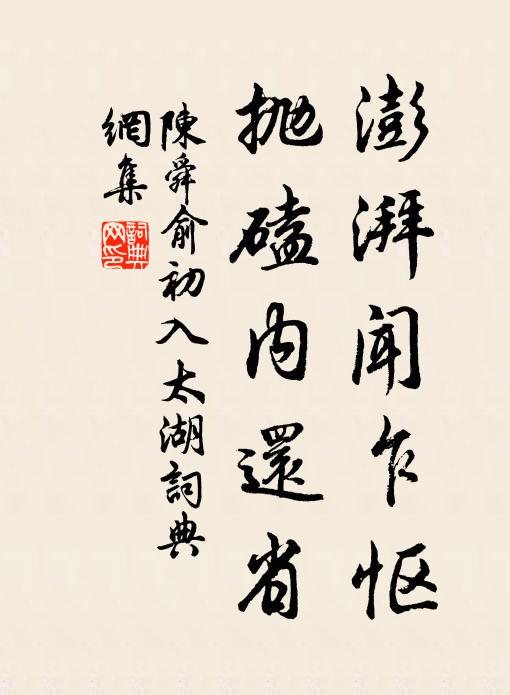 澎湃聞乍怄
抛磕内還省
陳舜俞初入太湖詞典
網集
詞典网印